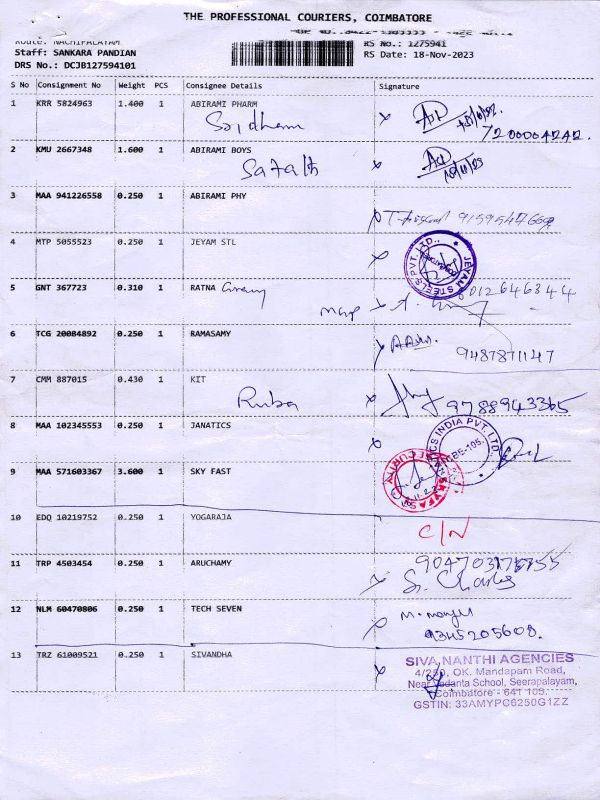 THE PROFESSIONAL COURIERS, COIMBATORE
Route: NACHIPALAYAM
Staff: SANKARA PANDIAN
DRS No.: DCJB127594101
RS No.: 1275941
RS Date: 18-Nov-2023
S No Consignment No Weight PCS Consignee Details Signature
1 KRR 5824963 1.400 1 ABIRAMI PHARM
Sridharan
7200004242.
2 KMU 2667348 1.600 1 ABIRAMI BOYS
Satath
3 MAA 941226558 0.250 1 ABIRAMI PHY
4 MTP 5055523 0.250 1 JEYAM STL
JEYAM STEELS PVT. LTD.,
5 GNT 367723 0.310 1 RATNA
8012646344
6 TCG 20084892 0.250 1 RAMASAMY
9487871147
7 CMM 887015 0.430 1 KIT
Ruba
9788943365
8 MAA 102345553 0.250 1 JANATICS
CS INDIA PVT. LTD.
CBE-105.
9 MAA 571603367 3.600 1 SKY FAST
SECURITY
SKYFAST
10 EDQ 10219752 0.250 1 YOGARAJA
C/N
11 TRP 4503454 0.250 1 ARUCHAMY
S. Charles
12 NLM 60470806 0.250 1 TECH SEVEN
9345205608.
13 TRZ 61009521 0.250 1 SIVANDHA
SIVA NANTHI AGENCIES
OK. Mandapam Road,
Near Vedanta School, Seerapalayam,
Coimbatore - 641 105.
GSTIN: 33AMYPC6250G1ZZ